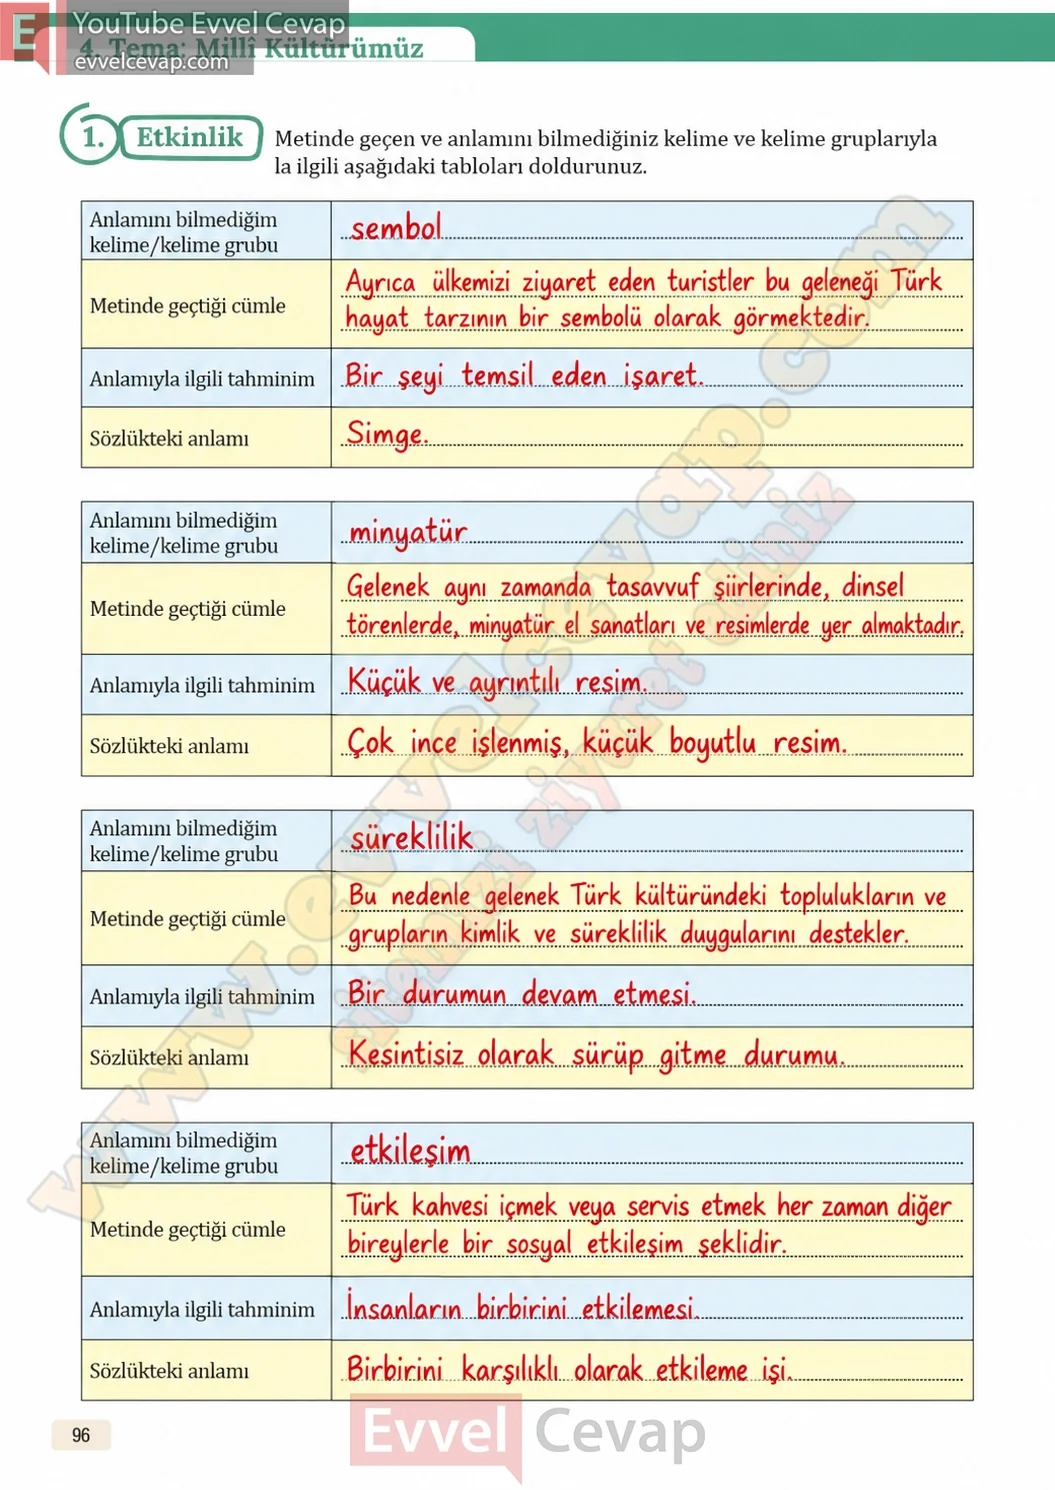 YouTube Evvel Cevap
evvelcevap.com
4. Tema: Millî Kültürümüz
1. Etkinlik
Metinde geçen ve anlamını bilmediğiniz kelime ve kelime gruplarıyla
la ilgili aşağıdaki tabloları doldurunuz.
Anlamını bilmediğim
kelime/kelime grubu
sembol
Metinde geçtiği cümle
Ayrıca ülkemizi ziyaret eden turistler bu geleneği Türk
hayat tarzının bir sembolü olarak görmektedir.
Anlamıyla ilgili tahminim
Bir şeyi temsil eden işaret.
Sözlükteki anlamı
Simge.
Anlamını bilmediğim
kelime/kelime grubu
minyatür
Metinde geçtiği cümle
Gelenek aynı zamanda tasavvuf şiirlerinde, dinsel
törenlerde, minyatür el sanatları ve resimlerde yer almaktadır.
Anlamıyla ilgili tahminim
Küçük ve ayrıntılı resim.
Sözlükteki anlamı
Çok ince işlenmiş, küçük boyutlu resim.
Anlamını bilmediğim
kelime/kelime grubu
süreklilik
Metinde geçtiği cümle
Bu nedenle gelenek Türk kültüründeki toplulukların ve
grupların kimlik ve süreklilik duygularını destekler.
Anlamıyla ilgili tahminim
Bir durumun devam etmesi.
Sözlükteki anlamı
Kesintisiz olarak sürüp gitme durumu.
Anlamını bilmediğim
kelime/kelime grubu
etkileşim
Metinde geçtiği cümle
Türk kahvesi içmek veya servis etmek her zaman diğer
bireylerle bir sosyal etkileşim şeklidir.
Anlamıyla ilgili tahminim
İnsanların birbirini etkilemesi.
Sözlükteki anlamı
Birbirini karşılıklı olarak etkileme işi.
www.evvelcevap.com
sitemizi ziyaret ediniz
96
Evvel Cevap